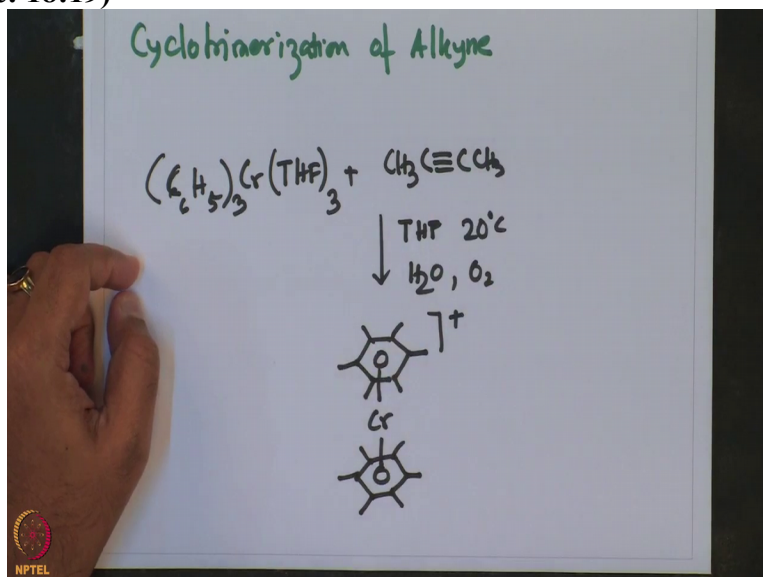 Cyclotrimerization of Alkyne
(C6H5)3Cr(THF)3 + CH3C≡CCH3
THF 20°C
H2O, O2
]+
Cr
NPTEL